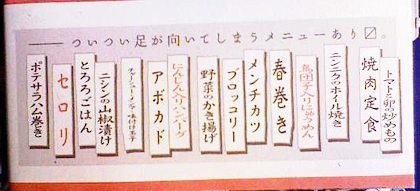 ついつい足が向いてしまうメニューあり〼。
トマトと卵の炒めもの
焼肉定食
ニンニクのホイル焼き
春巻き
メンチカツ
ブロッコリー
野菜のかき揚げ
にんじん入りハンバーグ
アボカド
チャーシューメン 味付け玉子
ニシンの山椒漬け
とろろごはん
セロリ
ポテサラハム巻き